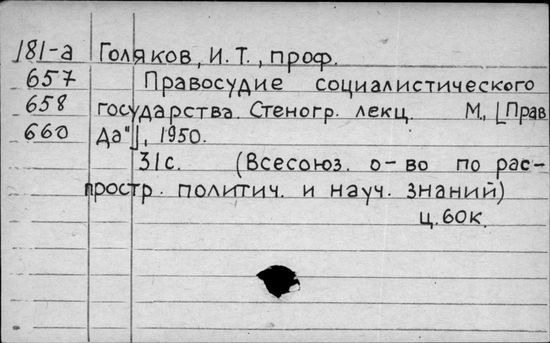 181-а Голяков, И. Т., проф.
657 Правосудие социалистического
658 государства. Стеногр. лекц. М., [Прав
660 да"], 1950.
31с. (Всесоюз. о-во по рас-
простр. политич. и науч. знаний)
ц. 60к.